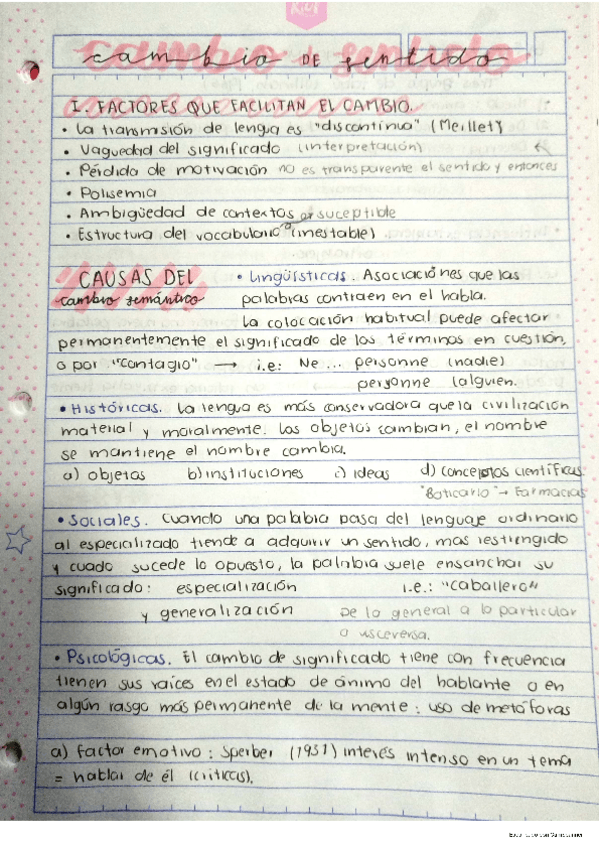 cambio DE sentido
I. FACTORES QUE FACILITAN EL CAMBIO.
• La transmisión de lengua es "discontinua" (Meillet)
• Vaguedad del significado (interpretación)
• Pérdida de motivación no es transparente el sentido y entonces
• Polisemia
• Ambigüedad de contextos suceptible
• Estructura del vocabulario (inestable).
CAUSAS DEL
cambio semántico
• Lingüísticas. Asociaciones que las
palabras contraen en el habla.
La colocación habitual puede afectar
permanentemente el significado de los términos en cuestión,
o por "contagio" → i.e: Ne... personne (nadie)
personne (alguien.
• Históricas. La lengua es más conservadora que la civilización
material y moralmente. Los objetos cambian, el nombre
se mantiene el nombre cambia.
a) objetos b) instituciones c) ideas d) conceptos científicas
"Boticario" → Farmacias
• Sociales. Cuando una palabra pasa del lenguaje ordinario
al especializado tiende a adquirir un sentido, mas restringido
y cuado sucede lo opuesto, la palabra suele ensanchar su
significado: especialización i.e.: "caballero"
y generalización De lo general a lo particular
o visceversa.
• Psicológicas. El cambio de significado tiene con frecuencia
tienen sus raíces en el estado de ánimo del hablante o en
algún rasgo más permanente de la mente: uso de metáforas
a) Factor emotivo: Sperber (1931) interés intenso en un tema
= hablar de él (críticas).